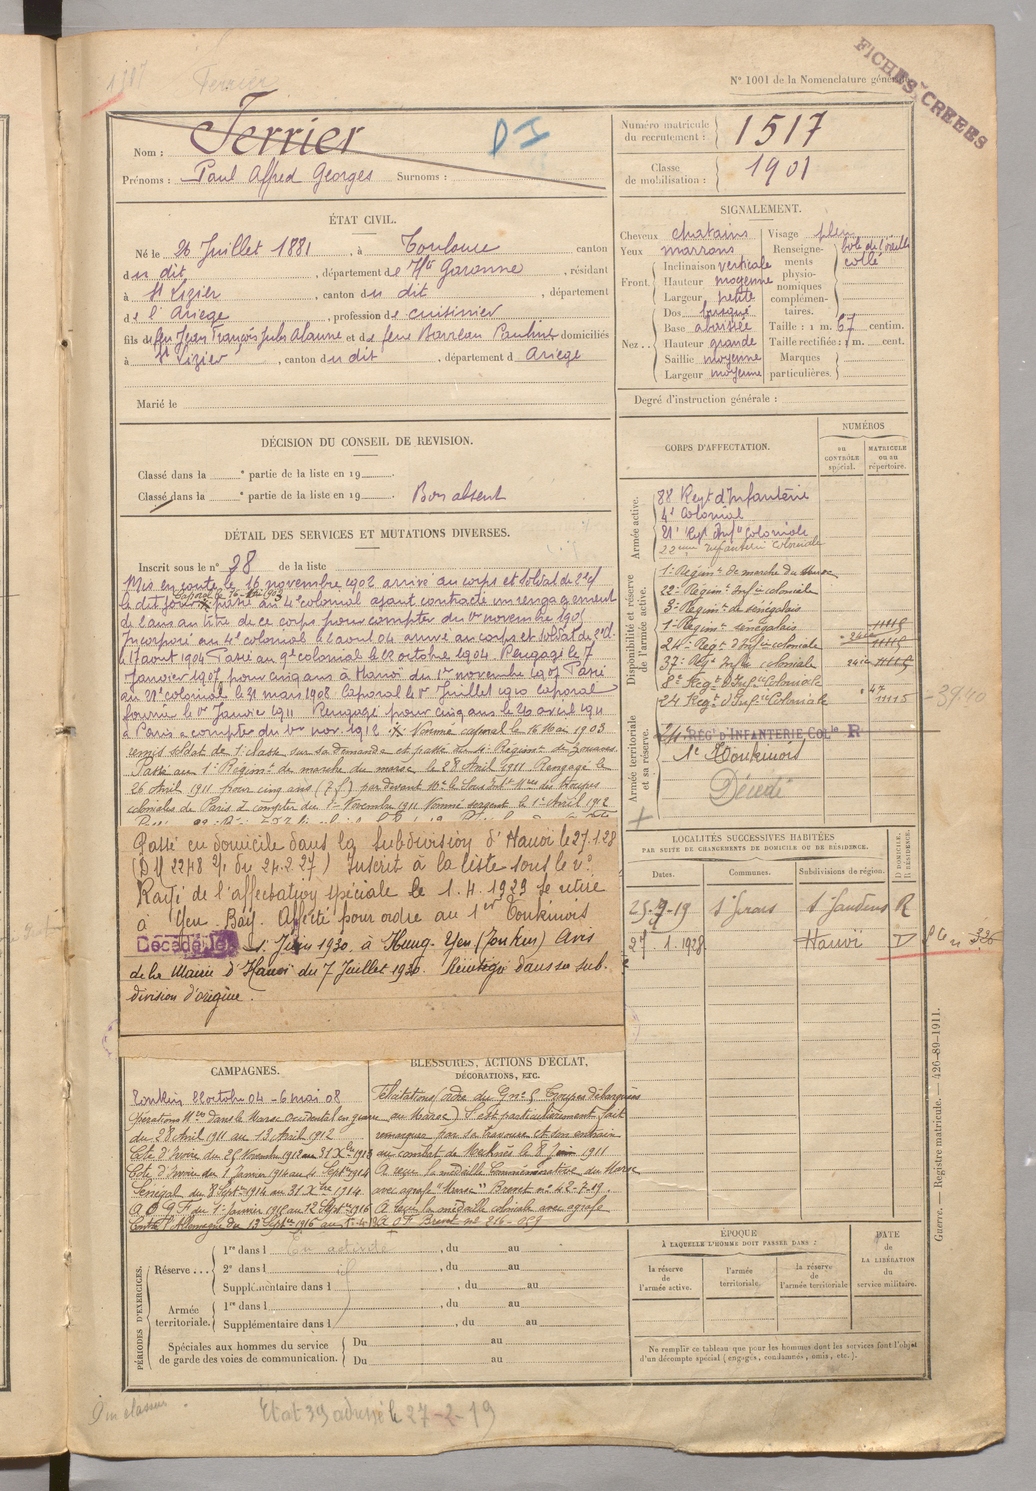 N° 1001 de la Nomenclature générale
FICHES CRÉÉES
1517
Ferrier
Nom : Ferrier
DI
Prénoms : Paul Alfred Georges Surnoms :
Numéro matricule du recrutement : 1517
Classe de mobilisation : 1901
ÉTAT CIVIL.
Né le 26 Juillet 1881, à Toulouse canton
du dit, département de Hte Garonne, résidant
à St Lizier, canton du dit, département
de l'Ariège, profession de cuisinier
fils de feu Jean François Jules et de feue Barreau Pauline domiciliés
à St Lizier, canton du dit, département d Ariège
Marié le
SIGNALEMENT.
Cheveux chatains
Yeux marrons
Front. Inclinaison verticale
Hauteur moyenne
Largeur petite
Nez.. Dos busqué
Base abaissée
Hauteur grande
Saillie moyenne
Largeur moyenne
Visage plein
Renseignements physionomiques complémentaires. lobe de l'oreille collé
Taille : 1 m. 67 centim.
Taille rectifiée : 1 m. cent.
Marques particulières.
Degré d'instruction générale :
DÉCISION DU CONSEIL DE REVISION.
Classé dans la e partie de la liste en 19
Classé dans la e partie de la liste en 19 Bon absent
DÉTAIL DES SERVICES ET MUTATIONS DIVERSES.
Inscrit sous le n° 28 de la liste
Mis en route le 16 novembre 1902 arrivé au corps et soldat de 2e cl
le dit jour passé au 4e colonial ayant contracté un rengagement
Caporal le 16 Mai 1903
de 2 ans au titre de ce corps pour compter du 1er novembre 1905
Incorporé au 4e colonial le 2 avril 04 arrivé au corps et soldat de 2e cl.
le 17 aout 1904 Passé au 9e colonial le 22 octobre 1904. Rengagé le 7
Janvier 1907 pour cinq ans à Hanoi du 1er novembre 1907 Passé
au 21e colonial le 31 mars 1908 Caporal le 1er Juillet 1910 Caporal
fourrier le 1er Janvier 1911 Rengagé pour cinq ans le 26 avril 1911
à Paris à compter du 1er nov. 1912 Nommé caporal le 16 Mai 1903
remis soldat de 1e classe sur sa demande et passé au 4e Régimt de Zouaves.
Passé au 1e Régimt de marche du maroc le 28 Avril 1911 Rengagé le
26 Avril 1911 pour cinq ans (7 f) par devant Mr le Sous Intt Mre des troupes
coloniales de Paris à compter du 1er Novembre 1911 Nommé sergent le 1er Avril 1912
Passé en domicile dans la subdivision d'Hanoi le 27.1.28
(DM 2248 2/1 du 24.2.27) Inscrit à la liste sous le n°
Rayé de l'affectation spéciale le 1.4.1929 Se retire
à Yen Bay. Affecté pour ordre au 1er Tonkinois
Décédé le 1 Juin 1930, à Hung-Yen (Tonkin) Avis
de la Mairie d'Hanoi du 7 Juillet 1930. Réintégré dans sa sub-
division d'origine.
CORPS D'AFFECTATION.
NUMÉROS
au CONTRÔLE spécial.
MATRICULE ou au répertoire.
Armée active.
88e Regt d'Infanterie
4e Colonial
21e Regt Infie Coloniale
22eme Infanterie Coloniale
Disponibilité et réserve de l'armée active.
1e Régimt de marche du Maroc
22e Régimt Infie coloniale
3e Régimt de sénégalais
1e Régimt sénégalais 11115
24e Regt d'Infie coloniale 11115
37e Regt Infie coloniale 11115
8e Regt d'Infie Coloniale
24 Regt d'Infie Coloniale 11115
Armée territoriale et sa réserve.
24e RÉGt D'INFANTERIE COLle R
1er Tonkinois
Décédé
LOCALITÉS SUCCESSIVES HABITÉES
PAR SUITE DE CHANGEMENTS DE DOMICILE OU DE RÉSIDENCE.
Dates. Communes. Subdivisions de région. D. DOMICILE. R. RÉSIDENCE.
25-9-19 St Girons St Gaudens R
27.1.1928 Hanoï D
326
CAMPAGNES.
Tonkin 22 octobre 04 - 6 mai 08
Opérations Mres dans le Maroc Occidental en guerre
du 28 Avril 1911 au 13 Avril 1912
Côte d'Ivoire du 25 Novembre 1912 au 31 Xbre 1913
Côte d'Ivoire du 1 Janvier 1914 au 4 Septre 1914
Sénégal du 8 Septre 1914 au 31 Xbre 1914
A O G F du 1er Janvier 1915 au 12 Septre 1916
Contre l'Allemagne du 13 Septre 1916 au
BLESSURES, ACTIONS D'ÉCLAT,
DÉCORATIONS, ETC.
Citations (ordre du Gne des Troupes débarquées
au Maroc) S'est particulièrement fait
remarquer par sa bravoure et son entrain
au combat de Meknès le 8 Juin 1911
A reçu la médaille Commémorative du Maroc
avec agrafe "Maroc" Brevet n° 42-719.
A reçu la médaille coloniale avec agrafe
A O F Brevet n° 216-059
PÉRIODES D'EXERCICES.
Réserve... 1re dans l En activité, du au
2e dans l id, du au
Supplémentaire dans l, du au
Armée territoriale. 1re dans l, du au
Supplémentaire dans l, du au
Spéciales aux hommes du service de garde des voies de communication. Du au
Du au
ÉPOQUE
À LAQUELLE L'HOMME DOIT PASSER DANS :
la réserve de l'armée active.
l'armée territoriale.
la réserve de l'armée territoriale
DATE de LA LIBÉRATION du service militaire.
Ne remplir ce tableau que pour les hommes dont les services font l'objet
d'un décompte spécial (engagés, condamnés, omis, etc.).
Guerre. — Registre matricule. — 426-89-1911.
Etat 39 adressé le 27-2-19